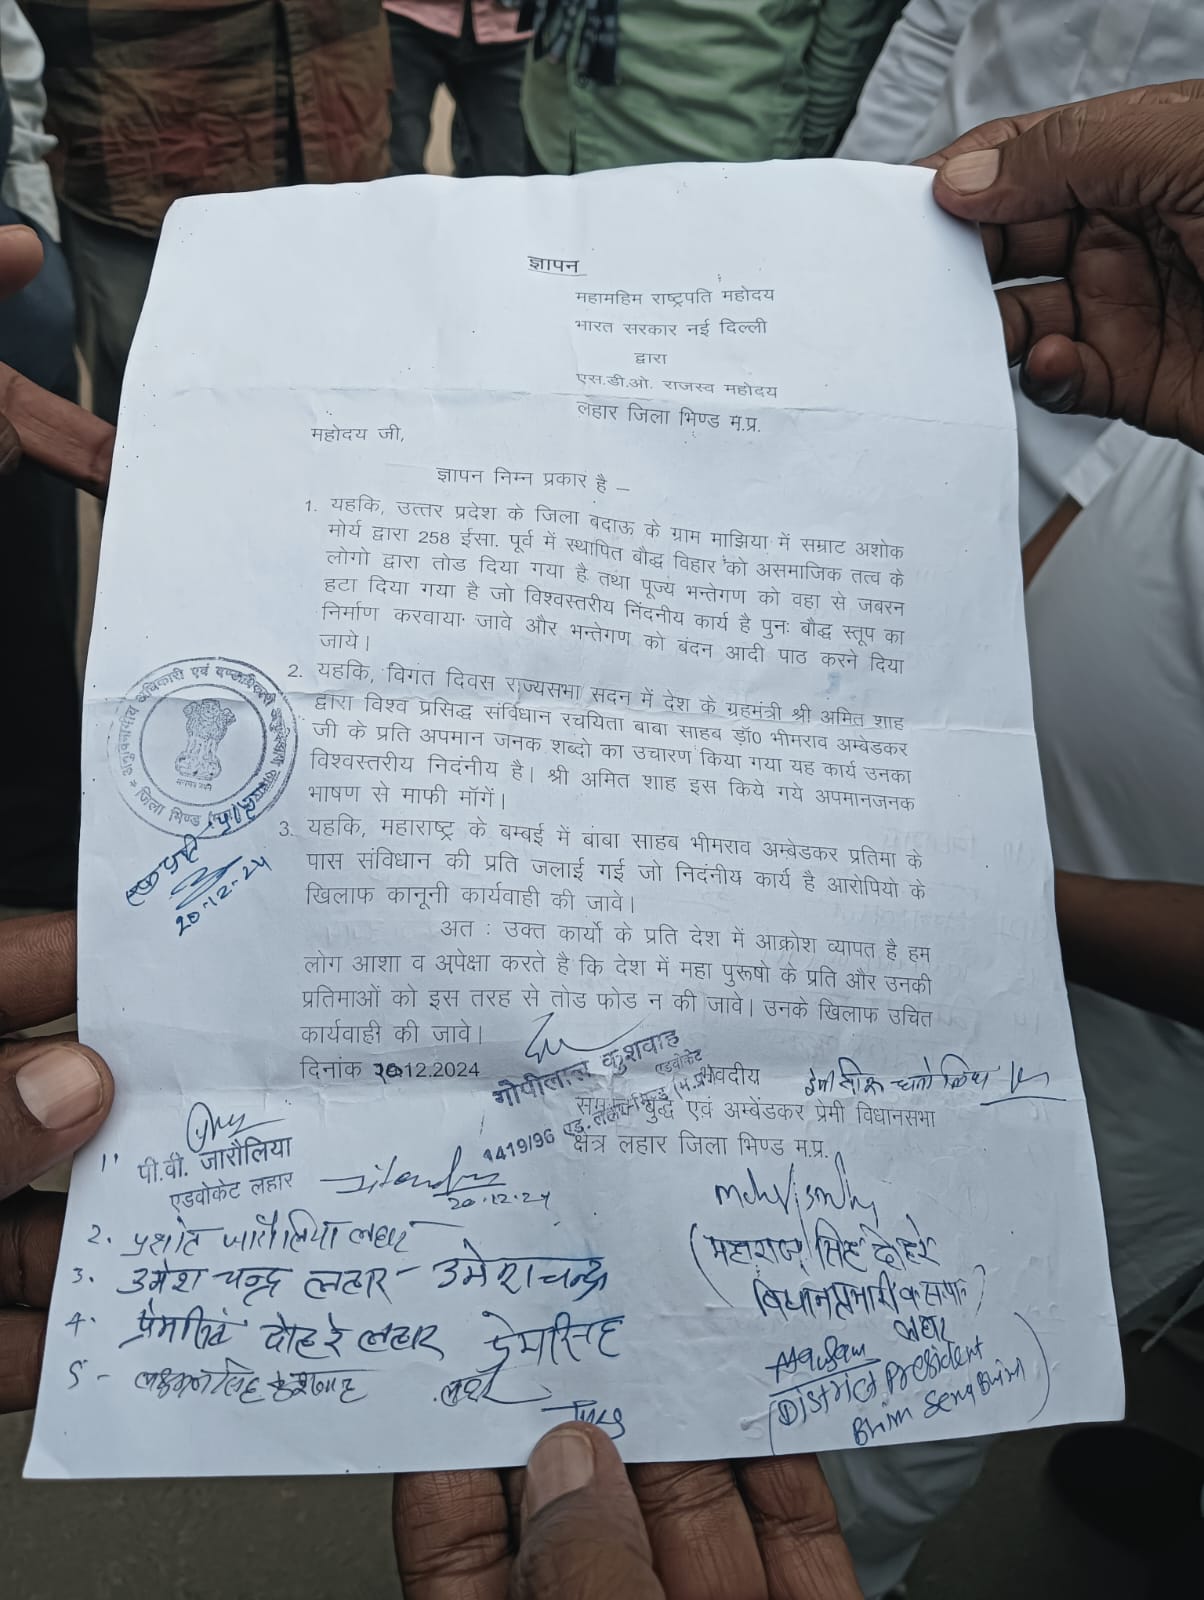 ज्ञापन
महामहिम राष्ट्रपति महोदय
भारत सरकार नई दिल्ली
द्वारा
एस.डी.ओ. राजस्व महोदय
लहार जिला भिण्ड म.प्र.
महोदय जी,
ज्ञापन निम्न प्रकार है –
1. यहकि, उत्तर प्रदेश के जिला बदाऊ के ग्राम माझिया में सम्राट अशोक
मोर्य द्वारा 258 ईसा. पूर्व में स्थापित बौद्ध विहार को असमाजिक तत्व के
लोगो द्वारा तोड दिया गया है तथा पूज्य भन्तेगण को वहा से जबरन
हटा दिया गया है जो विश्वस्तरीय निंदनीय कार्य है पुनः बौद्ध स्तूप का
निर्माण करवाया जावे और भन्तेगण को बंदन आदी पाठ करने दिया
जाये।
2. यहकि, विगत दिवस राज्यसभा सदन में देश के ग्रहमंत्री श्री अमित शाह
द्वारा विश्व प्रसिद्ध संविधान रचयिता बाबा साहब डॉ0 भीमराव अम्बेडकर
जी के प्रति अपमान जनक शब्दो का उचारण किया गया यह कार्य उनका
विश्वस्तरीय निदंनीय है। श्री अमित शाह इस किये गये अपमानजनक
भाषण से माफी मॉगें।
3. यहकि, महाराष्ट्र के बम्बई में बांबा साहब भीमराव अम्बेडकर प्रतिमा के
पास संविधान की प्रति जलाई गई जो निदंनीय कार्य है आरोपियो के
खिलाफ कानूनी कार्यवाही की जावे।
अत : उक्त कार्यो के प्रति देश में आक्रोश व्यापत है हम
लोग आशा व अपेक्षा करते है कि देश में महा पुरूषो के प्रति और उनकी
प्रतिमाओं को इस तरह से तोड फोड न की जावे। उनके खिलाफ उचित
कार्यवाही की जावे।
दिनांक 20.12.2024
भवदीय
बुद्ध एवं अम्बेंडकर प्रेमी विधानसभा
क्षेत्र लहार जिला भिण्ड म.प्र.
गोपीलाल कुशवाह
एडवोकेट
1419/96 एड. लहार भिण्ड (म.प्र.)
अनुविभागीय अधिकारी एवं दण्डाधिकारी
जिला भिण्ड (म.प्र.)
20.12.24
1. पी.वी. जारौलिया
एडवोकेट लहार
20.12.24
2. प्रशांत जारौलिया लहार
3. उमेश चन्द्र लहार – उमेश चन्द्र
4. प्रेमसिंह दोहरे लहार प्रेमसिंह
5 - लक्ष्मण सिंह कुशवाह लहार
(महाराज सिंह दोहरे
लहार
District President
Bhim Sena Bhind)